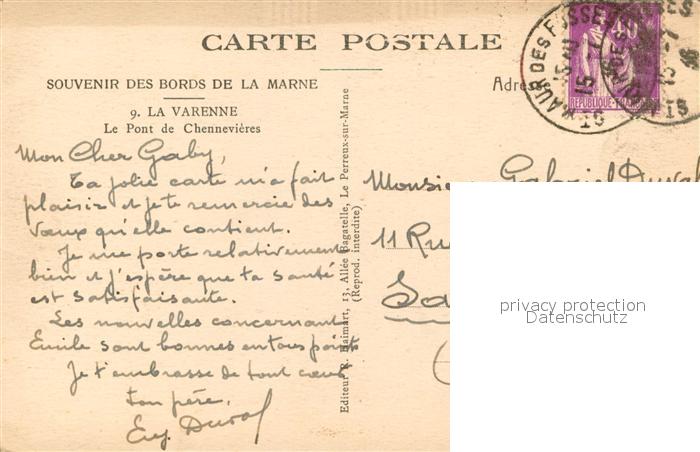 CARTE POSTALE
SOUVENIR DES BORDS DE LA MARNE
9. LA VARENNE
Le Pont de Chennevières
Mon Cher Gaby,
Ta jolie carte m'a fait
plaisir et je te remercie des
vœux qu'elle contient.
Je me porte relativement
bien et j'espère que ta santé
est satisfaisante.
Les nouvelles concernant
Emile sont bonnes en tous points
Je t'embrasse de tout cœur
ton père.
Eug. Duval
Editeur R. Haimart, 13, Allée Bagatelle, Le Perreux-sur-Marne
(Reprod. interdite)
Adres
ST MAUR DES FOSSES
15
REPUBLIQUE FRANCAISE
Monsieur Gabriel Duval
11 Rue
privacy protection
Datenschutz